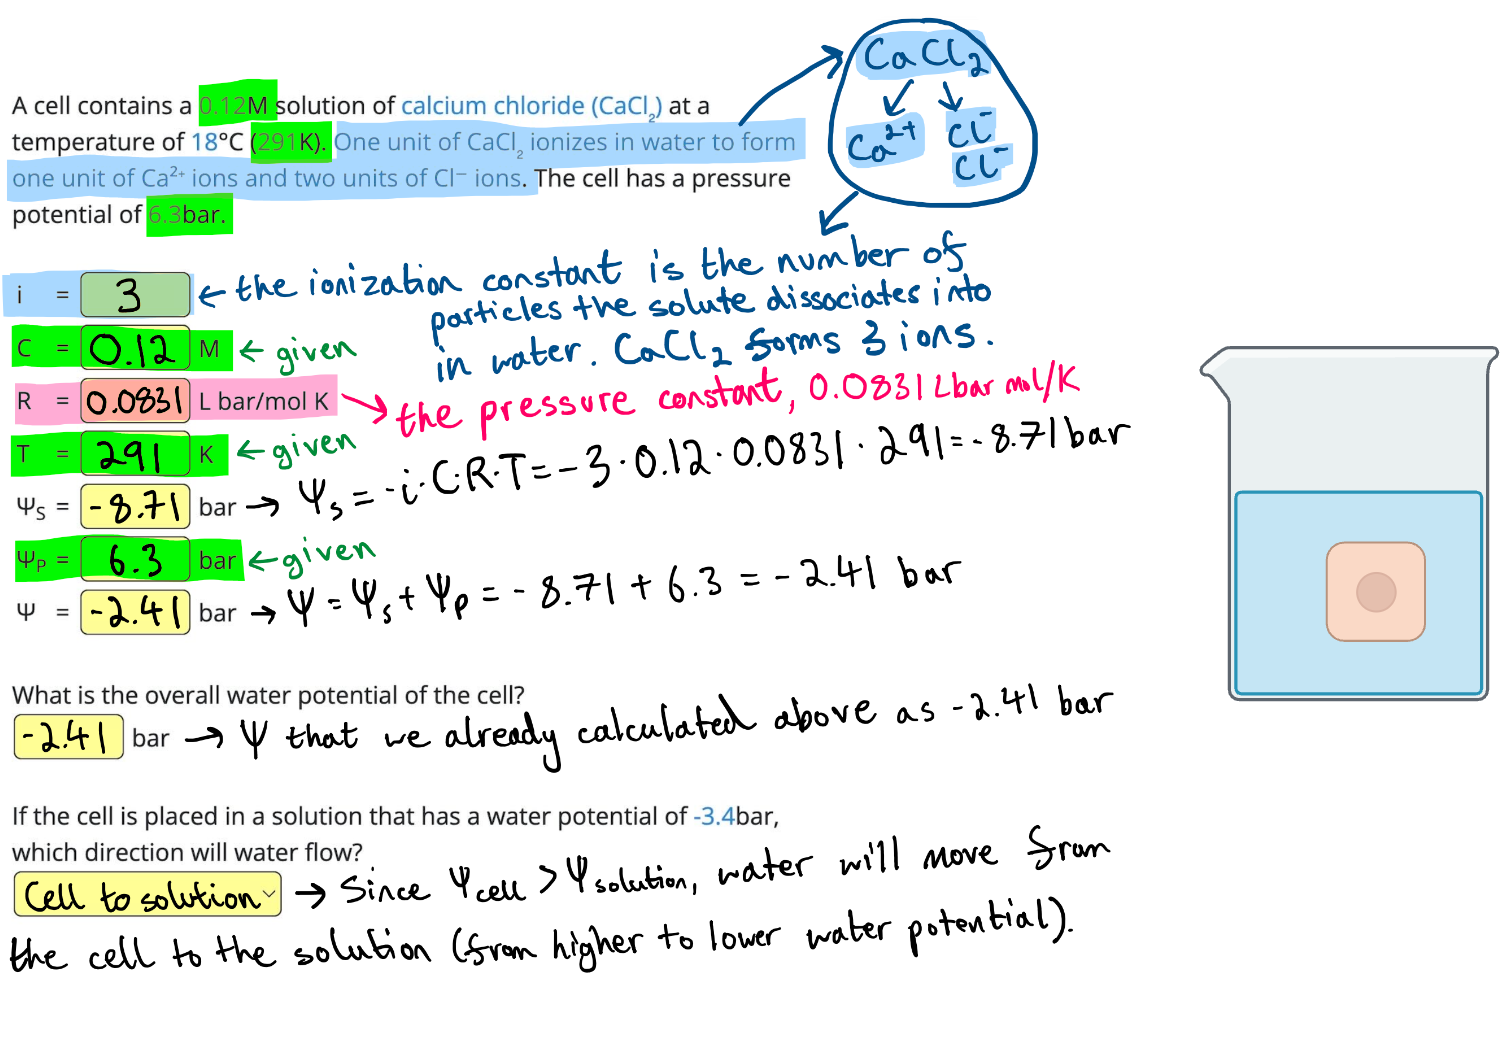 CaCl₂
Ca²⁺ Cl⁻
Cl⁻
A cell contains a 0.12M solution of calcium chloride (CaCl₂) at a
temperature of 18°C (291K). One unit of CaCl₂ ionizes in water to form
one unit of Ca²⁺ ions and two units of Cl⁻ ions. The cell has a pressure
potential of 6.3bar.
i = 3 ← the ionization constant is the number of
particles the solute dissociates into
in water. CaCl₂ forms 3 ions.
C = 0.12 M ← given
R = 0.0831 L bar/mol K → the pressure constant, 0.0831 L bar mol/K
T = 291 K ← given
Ψs = -8.71 bar → Ψs = -i·C·R·T = -3·0.12·0.0831·291 = -8.71 bar
ΨP = 6.3 bar ← given
Ψ = -2.41 bar → Ψ = Ψs + Ψp = -8.71 + 6.3 = -2.41 bar
What is the overall water potential of the cell?
-2.41 bar → Ψ that we already calculated above as -2.41 bar
If the cell is placed in a solution that has a water potential of -3.4bar,
which direction will water flow?
Cell to solution → Since Ψcell > Ψsolution, water will move from
the cell to the solution (from higher to lower water potential).